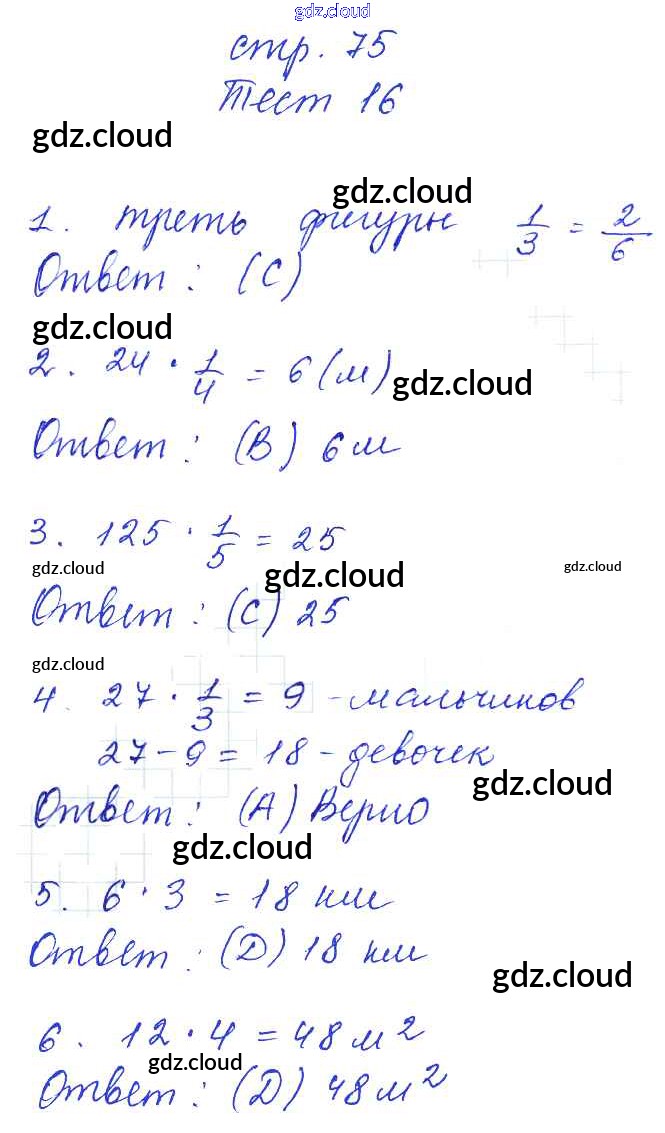 gdz.cloud
стр. 75
Тест 16
gdz.cloud
gdz.cloud
1. треть фигуры 1/3 = 2/6
Ответ: (С)
gdz.cloud
2. 24 · 1/4 = 6 (м)
gdz.cloud
Ответ: (В) 6 м
3. 125 · 1/5 = 25
gdz.cloud gdz.cloud gdz.cloud
Ответ: (С) 25
gdz.cloud
4. 27 · 1/3 = 9 - мальчиков
27 - 9 = 18 - девочек
gdz.cloud
Ответ: (А) Верно
gdz.cloud
5. 6 · 3 = 18 км
Ответ: (D) 18 км
gdz.cloud
6. 12 · 4 = 48 м²
gdz.cloud
Ответ: (D) 48 м²